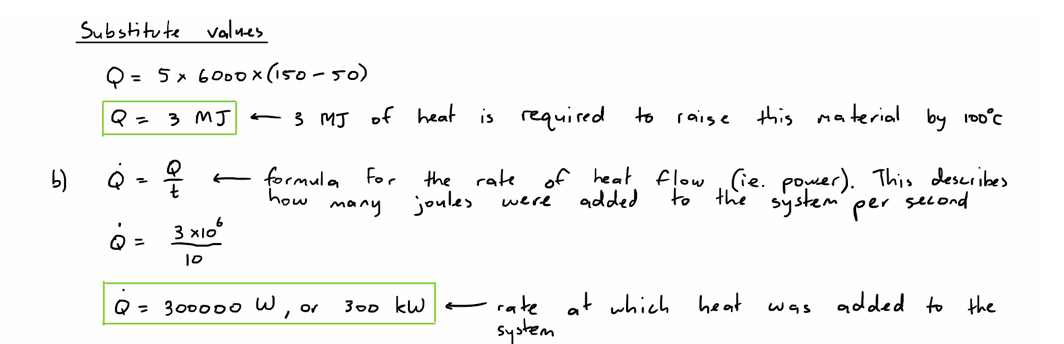 Substitute values
Q = 5 × 6000 × (150 - 50)
Q = 3 MJ ← 3 MJ of heat is required to raise this material by 100°C
b) Q̇ = Q/t ← formula for the rate of heat flow (ie. power). This describes
how many joules were added to the system per second
Q̇ = 3 × 10⁶ / 10
Q̇ = 300000 W, or 300 kW ← rate at which heat was added to the
system